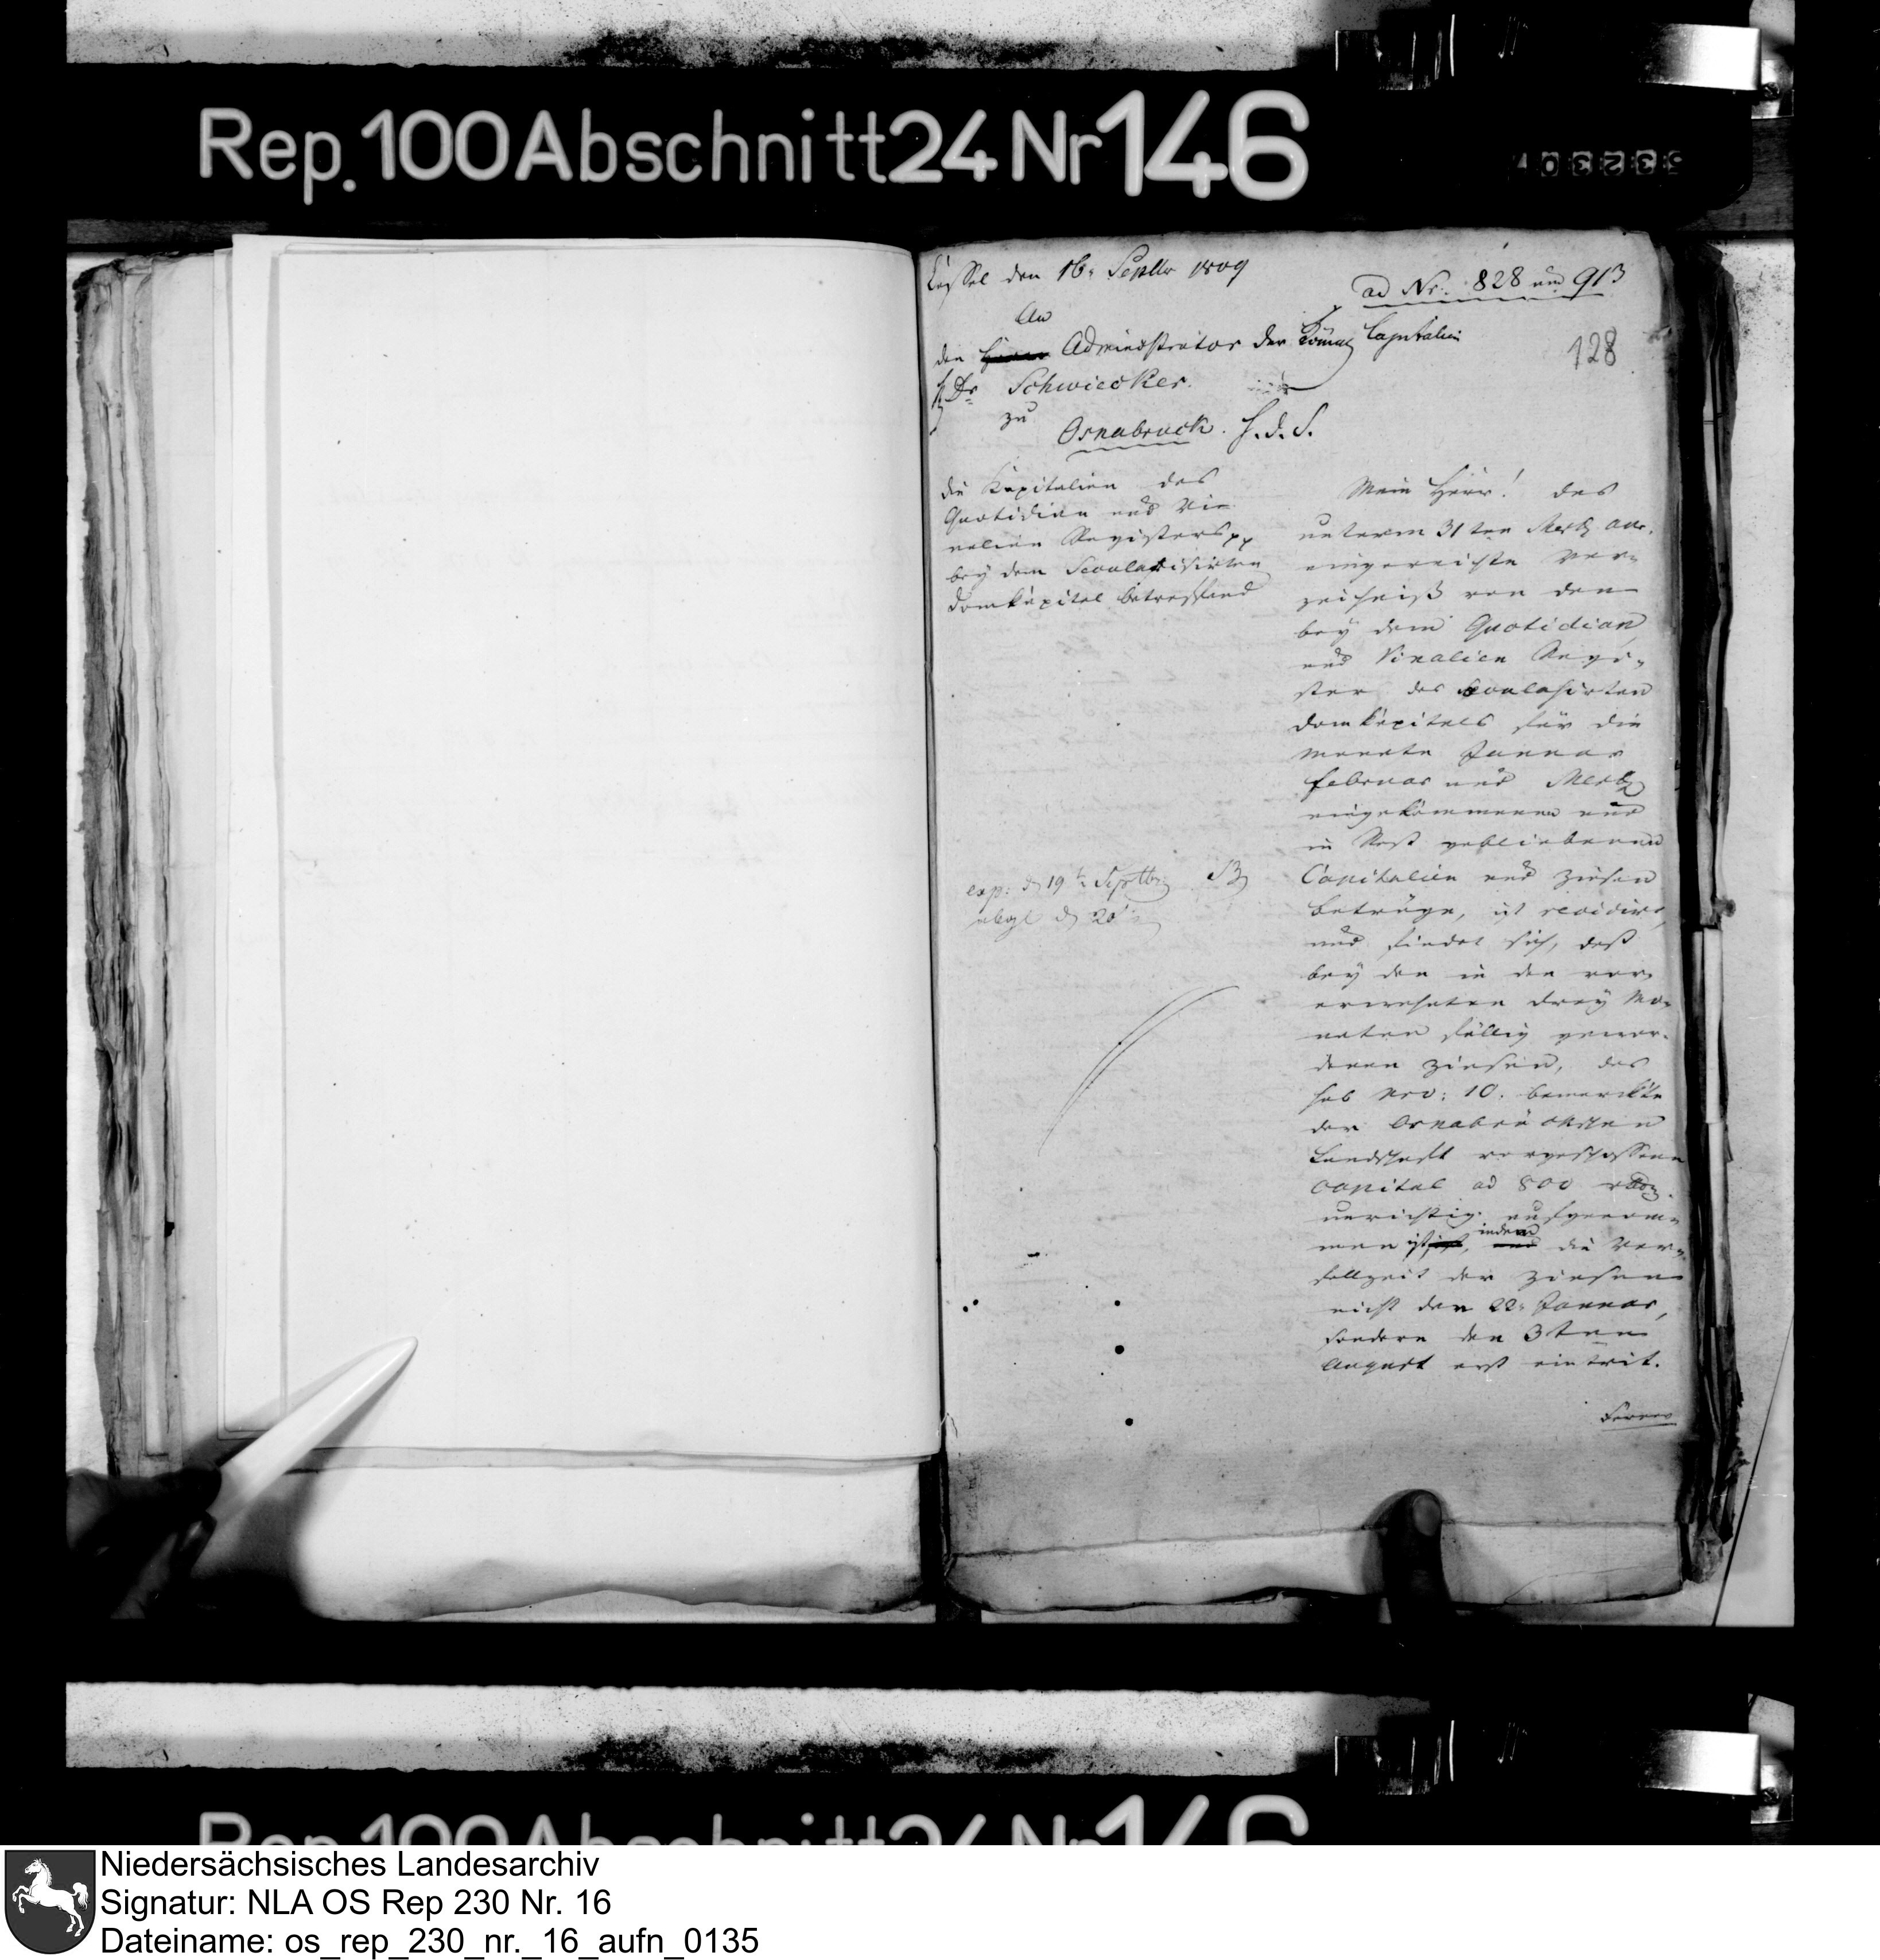 Rep. 100 Abschnitt 24 Nr 146
Cassel den 16. Septbr 1809
ad Nr. 828 und 913
128
An
den Herrn Administrator der Königl Capitalien
H Dr Schwiecker
zu
Osnabrück. H. d. S.
die Kapitalien des
Quotidian und Vin
nalien Registers pp
bey dem Secularisirten
Domkapitel betreffend
exp: d 19t Septbr
d 20t
Mein Herr! das
unterm 31ten Mertz
eingereichte Ver-
zeichniß von den
bey dem Quotidian
und Vinalien Regi-
ster des Secularisirten
Domkapitels für die
Monate Januar
Februar und Mertz
eingekommenen und
in Rest gebliebenen
Capitalien und Zinsen
Beträge, ist revidirt,
und findet sich, daß
bey den in den vor-
erwehnten drey Mo-
naten fällig gewor-
denen Zinsen, das
sub Nro: 10. bemerckte
der Osnabrückschen
Landschaft vorgeschossene
Capital ad 800 rthlr
unrichtig aufgenom-
men ist, indem die Ver-
fallzeit der Zinsen
nicht den 22. Januar,
sondern den 3ten
August erst eintrit.
Ferner
Rep. 100 Abschnitt 24 Nr 146
Niedersächsisches Landesarchiv
Signatur: NLA OS Rep 230 Nr. 16
Dateiname: os_rep_230_nr._16_aufn_0135